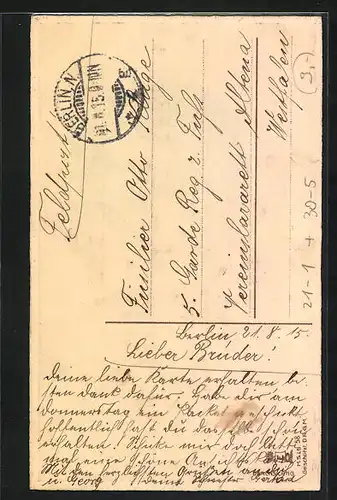 Feldpost
BERLIN N
Füsilier Otto
5. Garde Reg z. Fuß
Vereinslazarett Altena
Westfalen
3,-
21-1 + 30-5
Berlin, 21.8.15.
Lieber Bruder!
Deine liebe Karte erhalten be-
sten Dank dafür. Habe dir am
Donnerstag ein Packet geschickt
hoffentlich hast du das schon
erhalten! Schicke mir doch bitte
mal eine schöne Ansichts
Mit den herzlichsten Grüßen
u. Georg deine Schwester